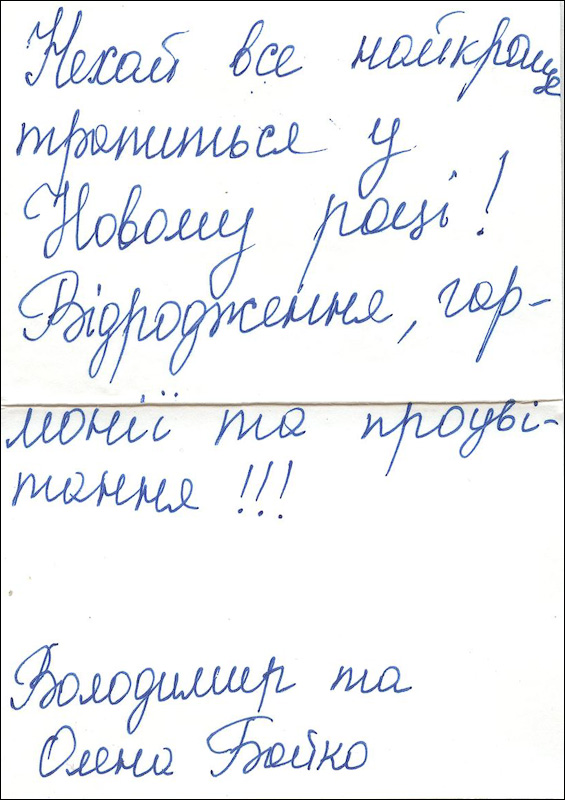 Нехай все найкраще
трапиться у
Новому році!
Відродження, гар-
монії та процві-
тання!!!
Володимир та
Олена Бойко